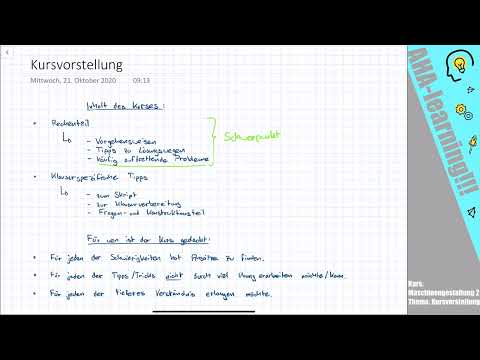 Kursvorstellung
Mittwoch, 21. Oktober 2020 09:13
Inhalt des Kurses:
• Rechenteil
- Vorgehensweisen
- Tipps zu Lösungswegen
- Häufig auftretende Probleme
Schwerpunkt
• Klausurspezifische Tipps
- zum Skript
- zur Klausurvorbereitung
- Fragen- und Konstruktionsteil
Für wen ist der Kurs gedacht:
• Für jeden der Schwierigkeiten hat Ansätze zu finden.
• Für jeden der Tipps/Tricks nicht durch viel Übung erarbeiten möchte/kann.
• Für jeden der tieferes Verständnis erlangen möchte.
AHA-learning!!!
Kurs:
Maschinengestaltung 2
Thema: Kursvorstellung